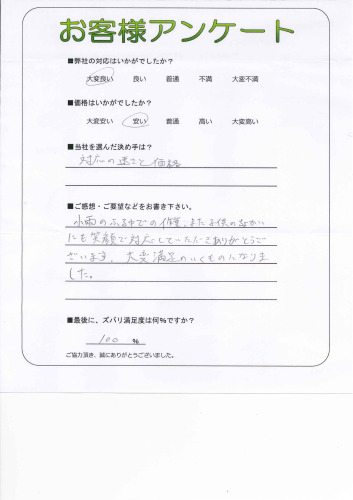 お客様アンケート
■弊社の対応はいかがでしたか？
大変良い　良い　普通　不満　大変不満
■価格はいかがでしたか？
大変安い　安い　普通　高い　大変高い
■当社を選んだ決め手は？
対応の速さと価格
■ご感想・ご要望などをお書き下さい。
小雨のふる中での作業、また子供の
にも笑顔で対応していただきありがとうご
ざいます。大変満足のいくものになりま
した。
■最後に、ズバリ満足度は何％ですか？
100 ％
ご協力頂き、誠にありがとうございました。